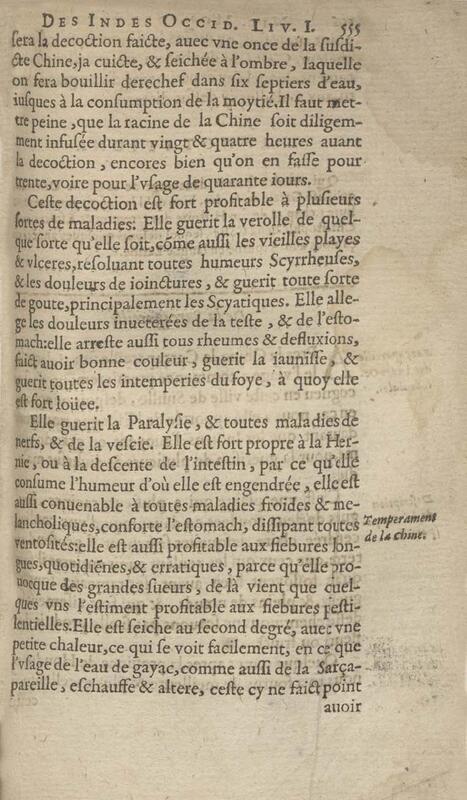 DES INDES OCCID. LIV. I. 555
sera la decoction faicte, auec vne once de la susdi-
cte Chine, ja cuicte, & seichée à l'ombre, laquelle
on fera bouillir derechef dans six septiers d'eau,
iusques à la consumption de la moytié. Il faut met-
tre peine, que la racine de la Chine soit diligem-
ment infusée durant vingt & quatre heures auant
la decoction, encores bien qu'on en fasse pour
trente, voire pour l'vsage de quarante iours.
Ceste decoction est fort profitable à plusieurs
sortes de maladies: Elle guerit la verolle de quel-
que sorte qu'elle soit, cõme aussi les vieilles playes
& vlceres, resoluant toutes humeurs Scyrrheuses,
& les douleurs de ioinctures, & guerit toute sorte
de goute, principalement les Scyatiques. Elle alle-
ge les douleurs inueterées de la teste, & de l'esto-
mach: elle arreste aussi tous rheumes & defluxions,
faict auoir bonne couleur, guerit la iaunisse, &
guerit toutes les intemperies du foye, à quoy elle
est fort loüee.
Elle guerit la Paralysie, & toutes maladies de
nerfs, & de la vescie. Elle est fort propre à la Her-
nie, ou à la descente de l'intestin, par ce qu'elle
consume l'humeur d'où elle est engendrée, elle est
aussi conuenable à toutes maladies froides & me-
lancholiques, conforte l'estomach, dissipant toutes
ventosités: elle est aussi profitable aux fiebures lon-
gues, quotidiẽnes, & erratiques, parce qu'elle pro-
uocque des grandes sueurs, de là vient que cuel-
ques vns l'estiment profitable aux fiebures pesti-
lentielles. Elle est seiche au second degré, auec vne
petite chaleur, ce qui se voit facilement, en ce que
l'vsage de l'eau de gayac, comme aussi de la Sarça-
pareille, eschauffe & altere, ceste cy ne faict point
auoir
Temperament
de la Chine.